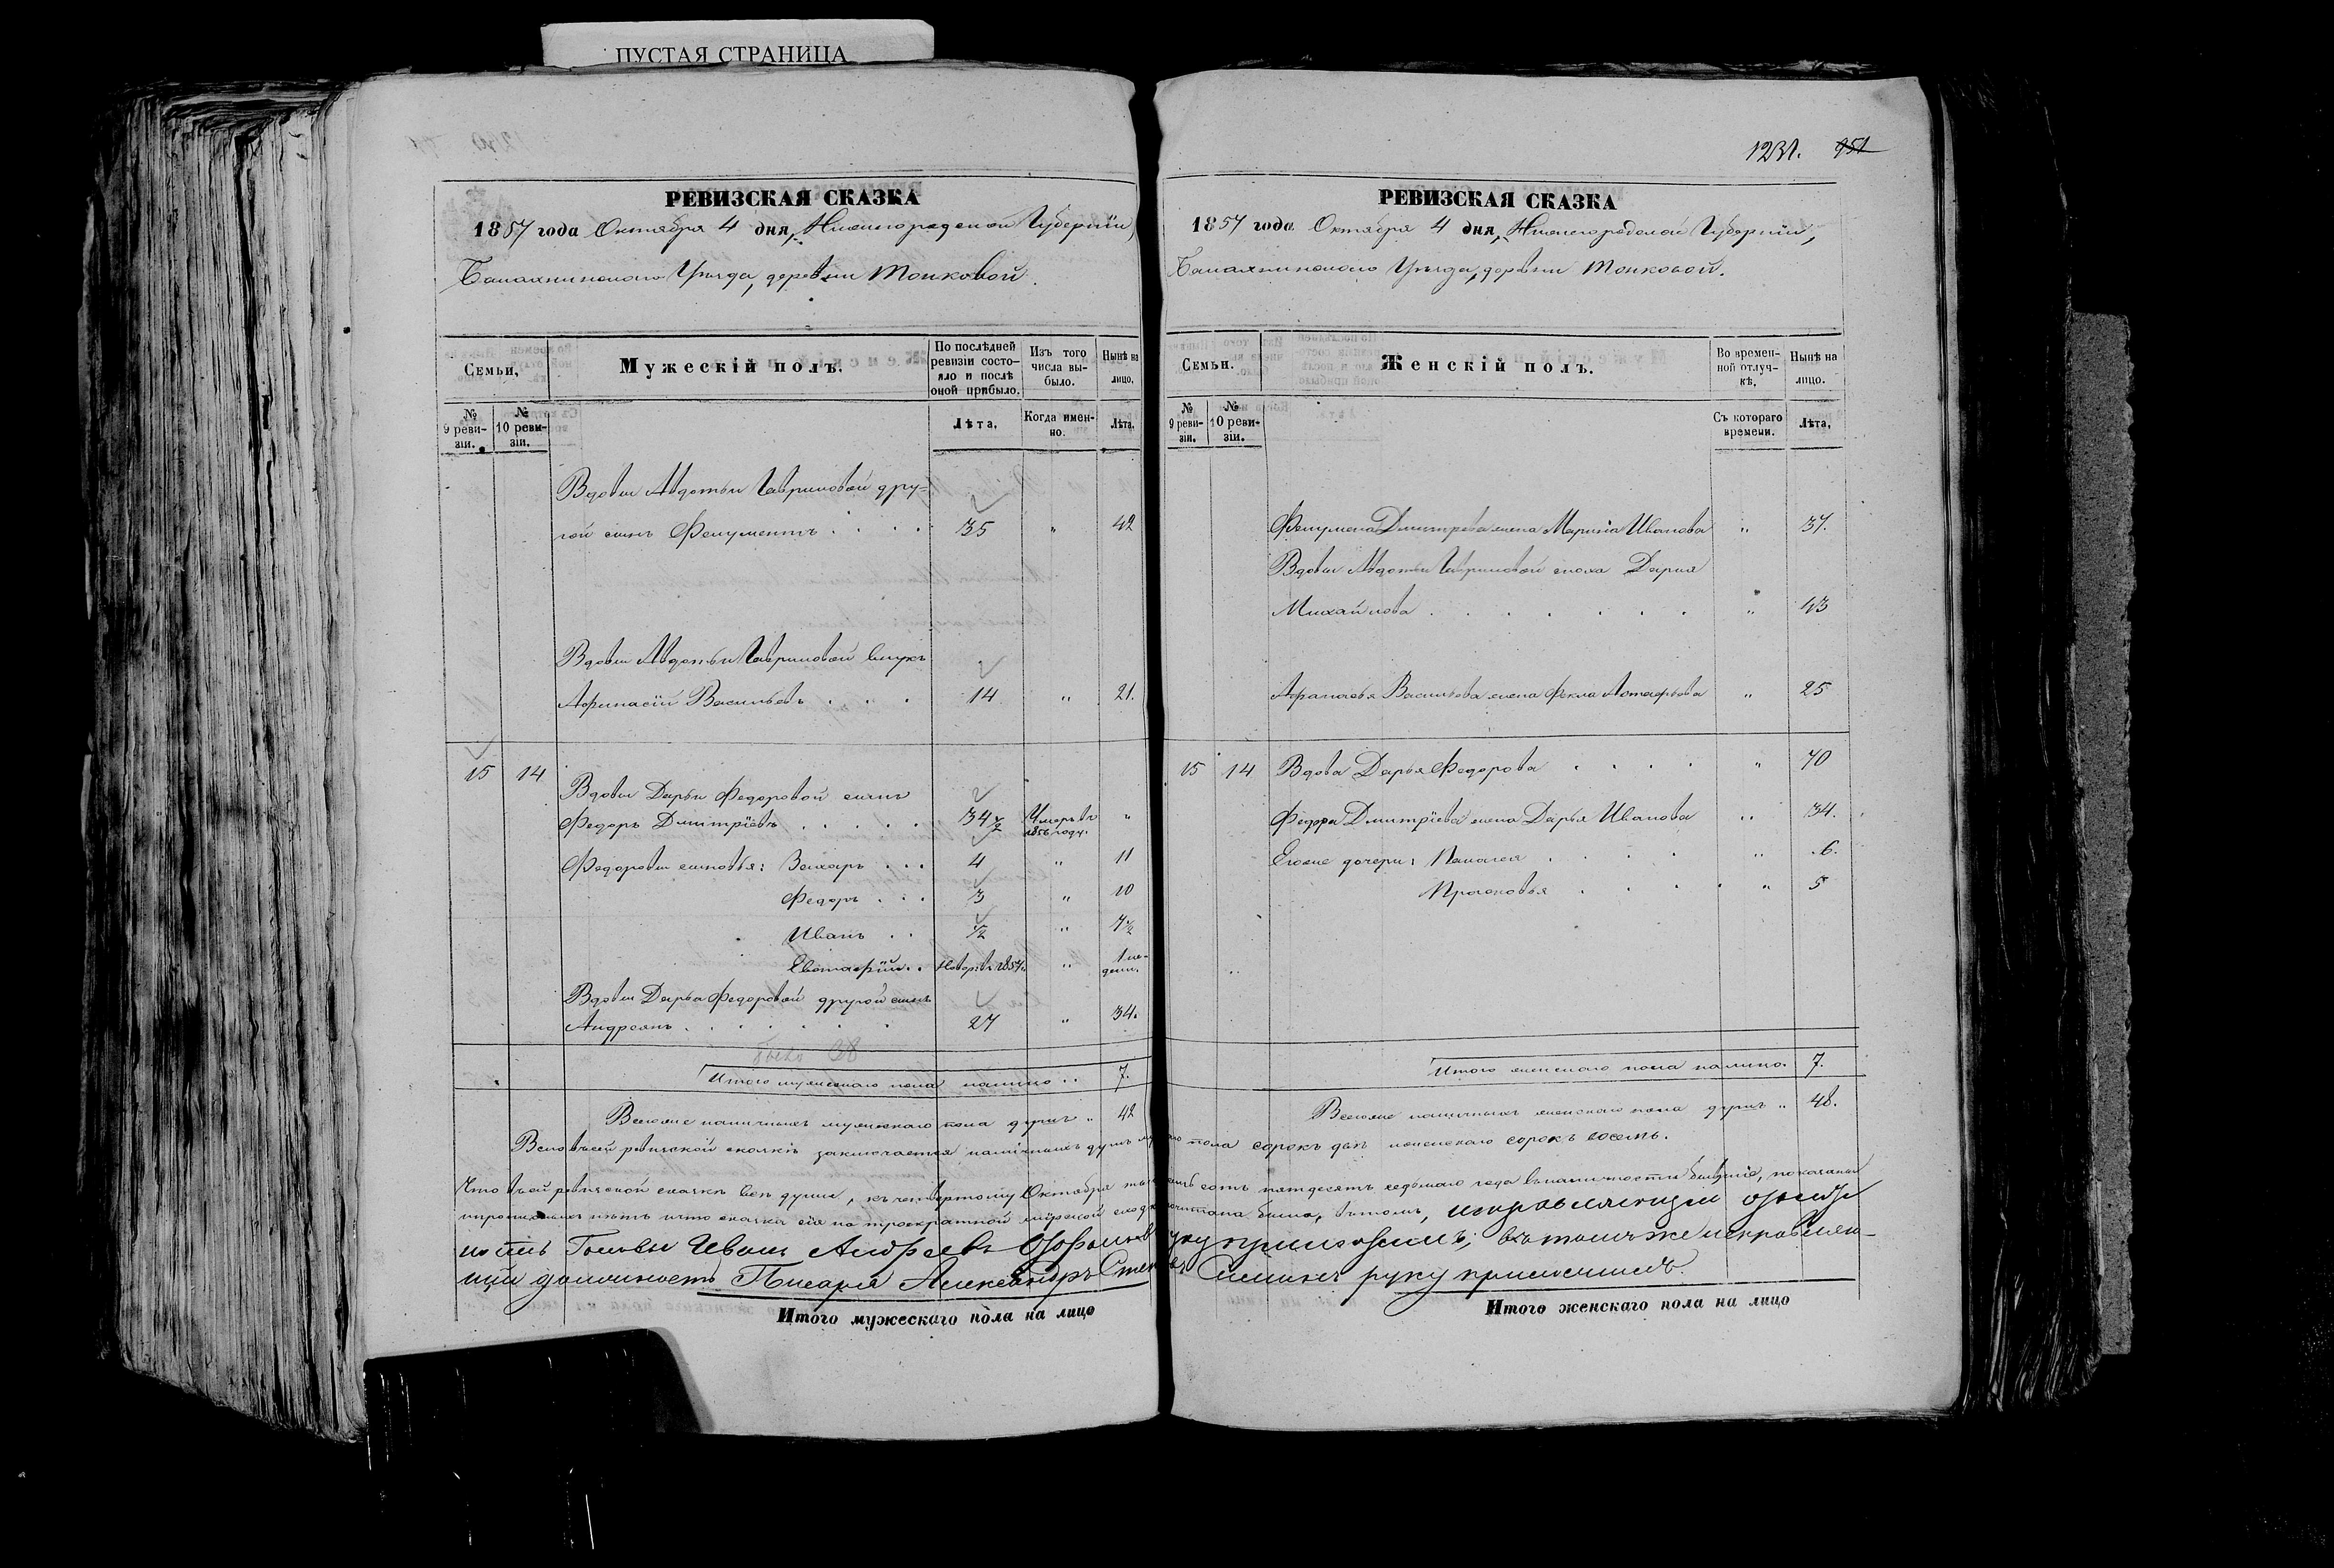 ПУСТАЯ СТРАНИЦА
РЕВИЗСКАЯ СКАЗКА
1857 года Октября 4 дня, Нижегородской Губерніи,
Балахнинскаго Уѣзда, деревни Тонковой.
Семьи,
Мужескій полъ.
По послѣдней ревизіи состояло и послѣ оной прибыло.
Изъ того числа выбыло.
Нынѣ на лицо.
№ 9 ревизіи.
№ 10 ревизіи.
Лѣта.
Когда именно.
Лѣта.
Вдовы Авдотьи Гавриловой дру-
гой сынъ Филументъ . . . . 35 " 42
Вдовы Авдотьи Гавриловой внукъ
Афанасій Васильевъ . . . 14 " 21.
15 14
Вдовы Дарьи Федоровой сынъ
Федоръ Дмитріевъ . . . . . 34 1/2 Умеръ въ 1856 году. "
Федоровы сыновья: Захаръ . . . 4 " 11
Федоръ . . . 3 " 10
Иванъ . . 1/2 " 7 1/2
Евстафій . . Новорж. 1857. " 1 недели.
Вдовы Дарьи Федоровой другой сынъ
Андреянъ . . . . . . 27 " 34.
было 38
Итого мужескаго пола налицо . . 7.
Всего же наличныхъ мужескаго пола душъ " 42
1231. 951
РЕВИЗСКАЯ СКАЗКА
1857 года Октября 4 дня, Нижегородской Губерніи,
Балахнинскаго Уѣзда, деревни Тонковой.
Семьи.
Женскій полъ.
Во временной отлучкѣ,
Нынѣ на лицо.
№ 9 ревизіи.
№ 10 ревизіи.
Съ котораго времени.
Лѣта,
Филумента Дмитрева жена Марина Иванова " 37.
Вдовы Авдотьи Гавриловой сноха Дарья
Михайлова . . . . . . . " 43
Афанасья Васильева жена Фекла Астафьева " 25
15 14 Вдова Дарья Федорова . . . . " 70
Федора Дмитріева жена Дарья Иванова " 34.
Егоже дочери: Палагея . . . . " 6.
Прасковья . . . . " 5
Итого женскаго пола налицо. 7.
Всего же наличныхъ женскаго пола душъ " 48.
Всего въ сей ревизской сказкѣ заключается наличныхъ душъ пола сорокъ два женскаго сорокъ восемь.
Что въ сей ревизской сказкѣ всѣ души, къ четвертому Октября сотъ пятдесятъ седьмаго года въ наличности бывшіе, показаны
и прописныхъ нѣтъ и что сказка сія на троекратной мірской сходкѣ читана была, въ томъ, исправляющій должн
ность Головы Иванъ Андреевъ руку приложилъ; въ томъ же исправляю-
щій должность Писаря Александръ руку приложилъ.
Итого мужескаго пола на лицо
Итого женскаго пола на лицо